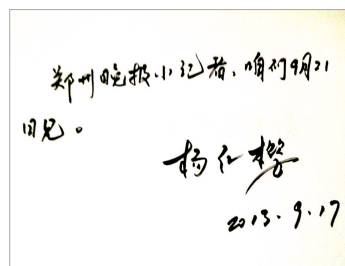 郑州晚报小记者，咱们9月21
日见。
杨红樱
2013.9.17